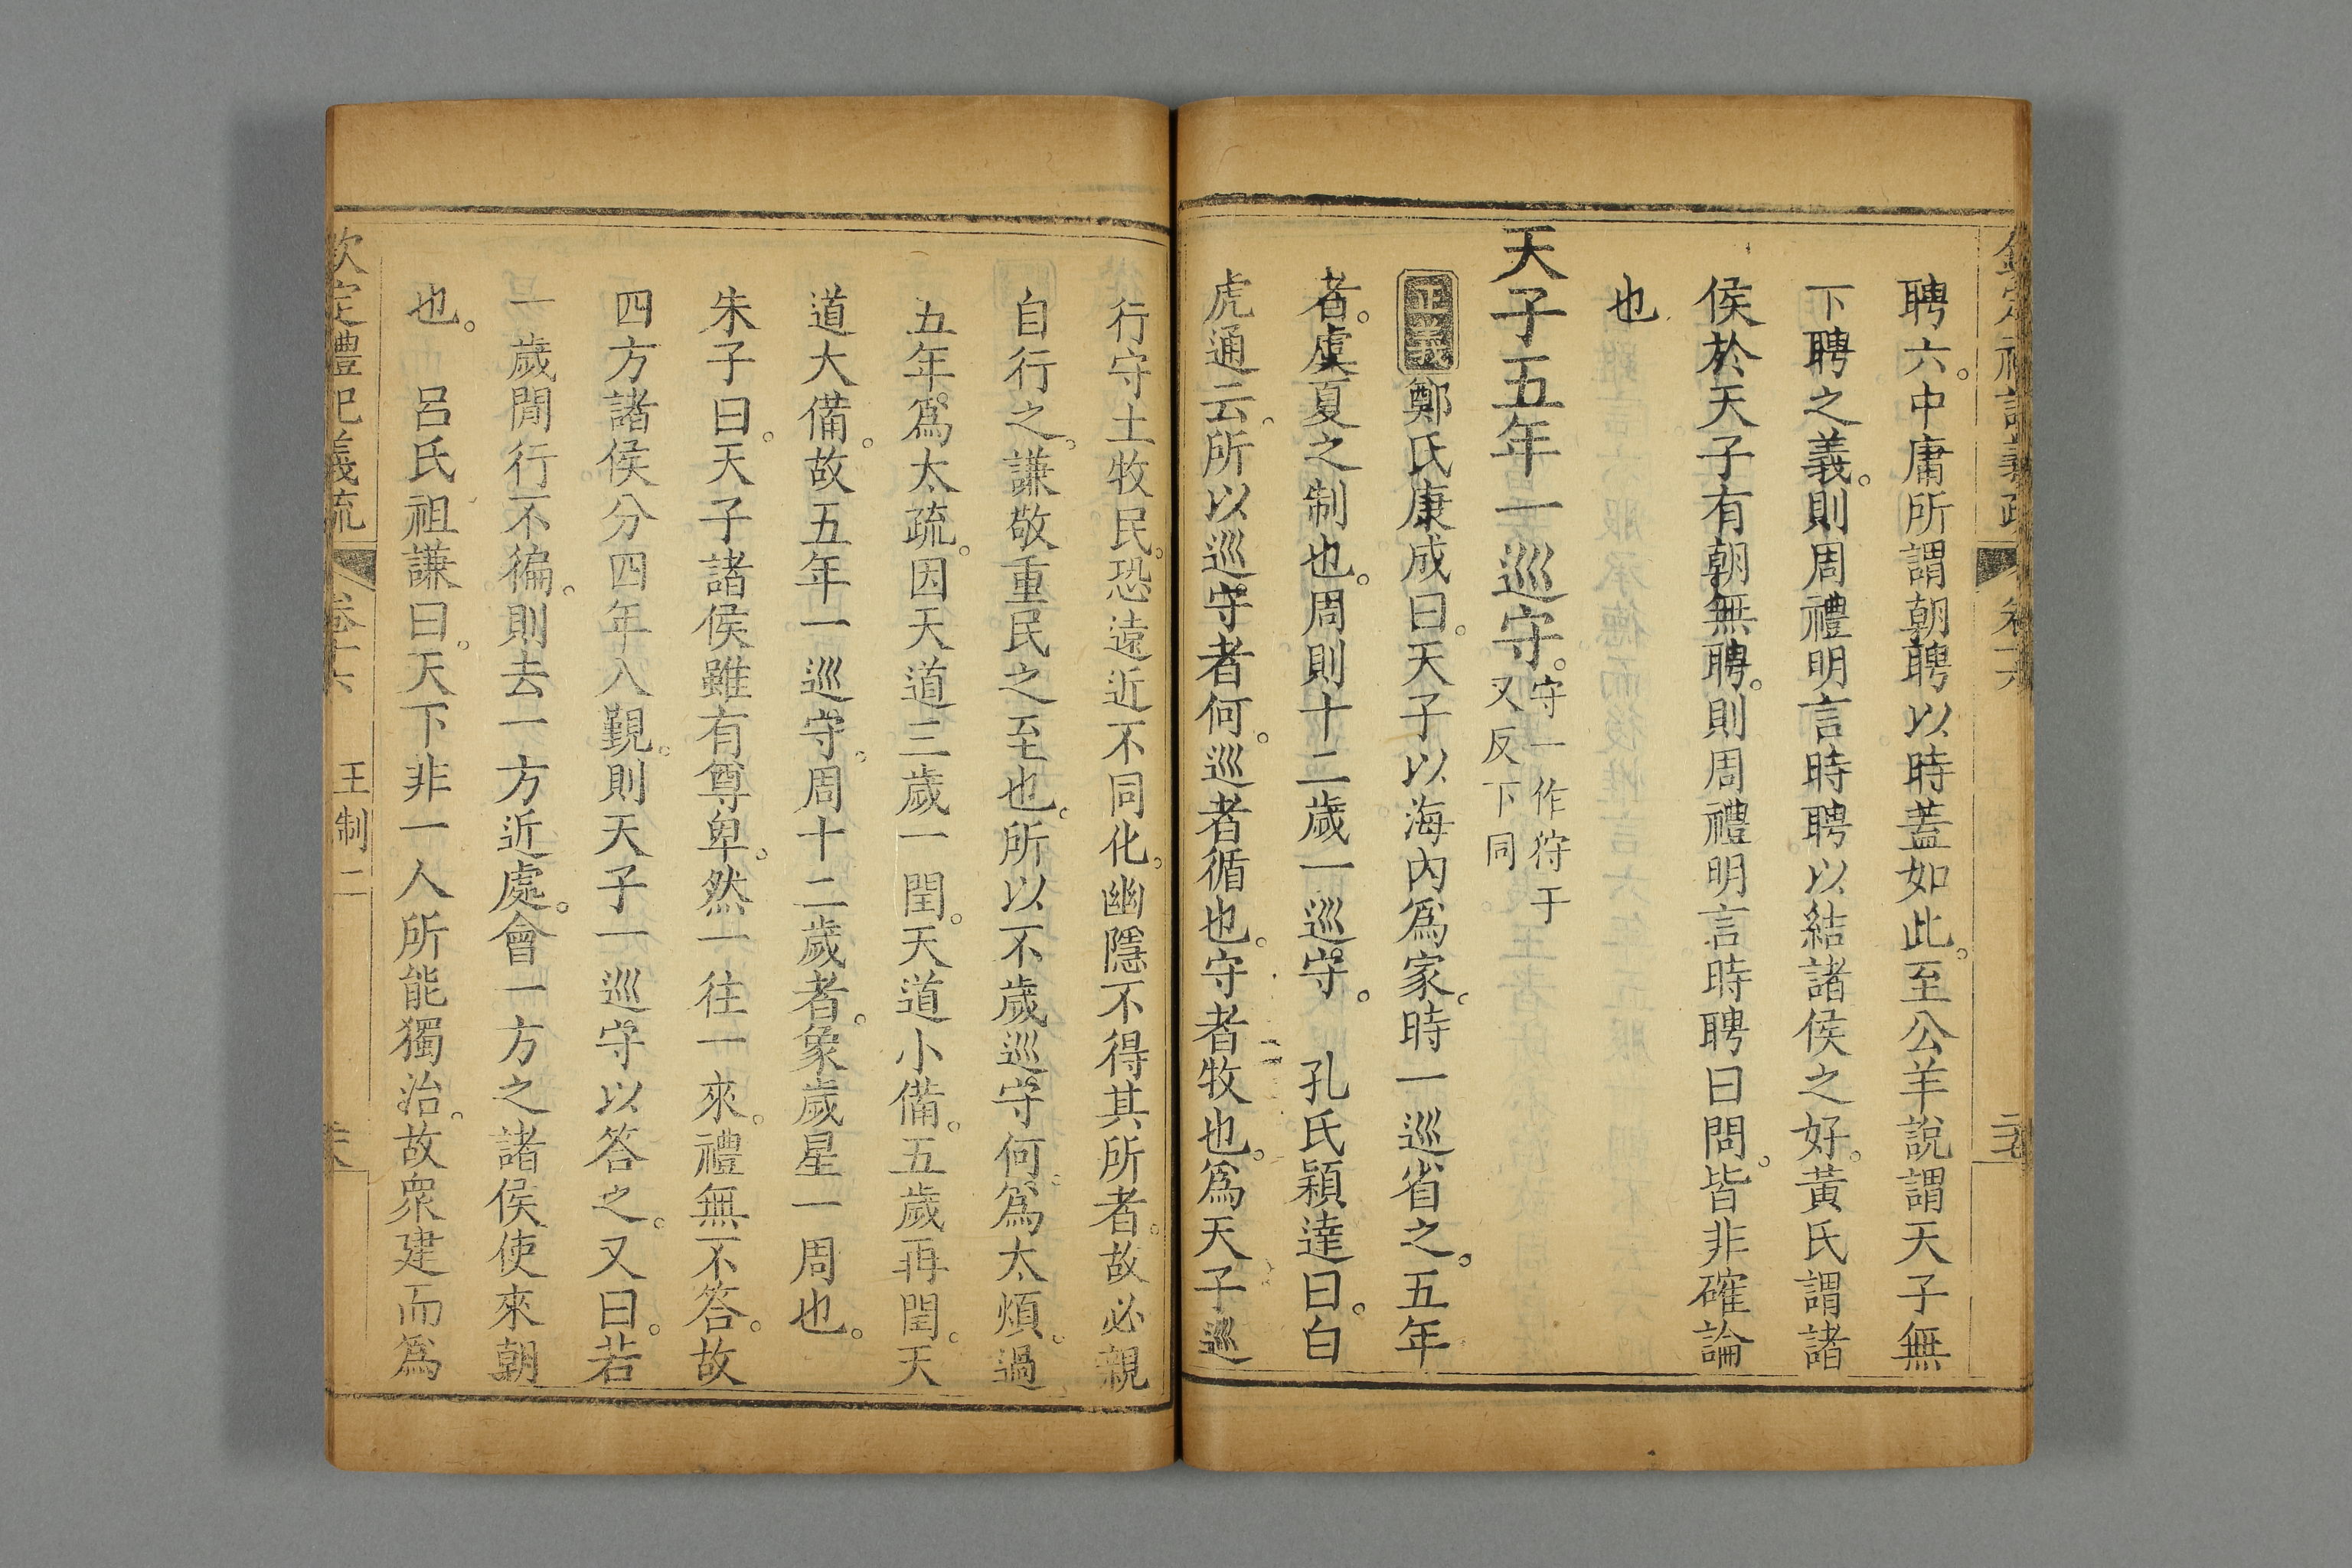 聘六。中庸所謂朝聘以時蓋如此。至公羊說謂天子無
下聘之義。則周禮明言時聘以結諸侯之好。黃氏謂諸
侯於天子有朝無聘。則周禮明言時聘曰問。皆非確論
也
天子五年一巡守。守一作狩于
又反下同
正義鄭氏康成曰。天子以海內爲家。時一巡省之。五年
者。虞夏之制也。周則十二歲一巡守。 孔氏穎達曰。白
虎通云。所以巡守者何。巡者循也。守者牧也。爲天子巡
行守土牧民。恐遠近不同化。幽隱不得其所者。故必親
自行之。謙敬重民之至也。所以不歲巡守何。爲太煩。過
五年。爲太疏。因天道三歲一閏。天道小備。五歲再閏。天
道大備。故五年一巡守。周十二歲者。象歲星一周也。
朱子曰。天子諸侯雖有尊卑。然一往一來。禮無不答。故
四方諸侯分四年入覲。則天子一巡守以答之。又曰。若
一歲閒行不徧。則去一方近處。會一方之諸侯使來朝
也。 呂氏祖謙曰。天下非一人所能獨治。故衆建而爲
欽定禮記義疏 卷十六 王制二